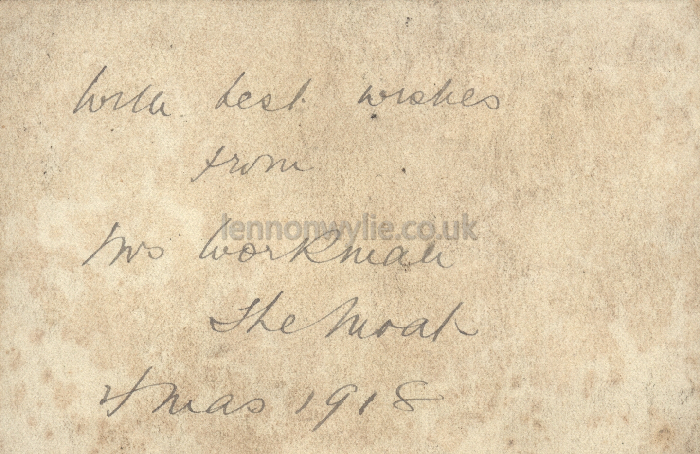 With best wishes
from
lennonwylie.co.uk
Mrs Workman
The Moat
Xmas 1918